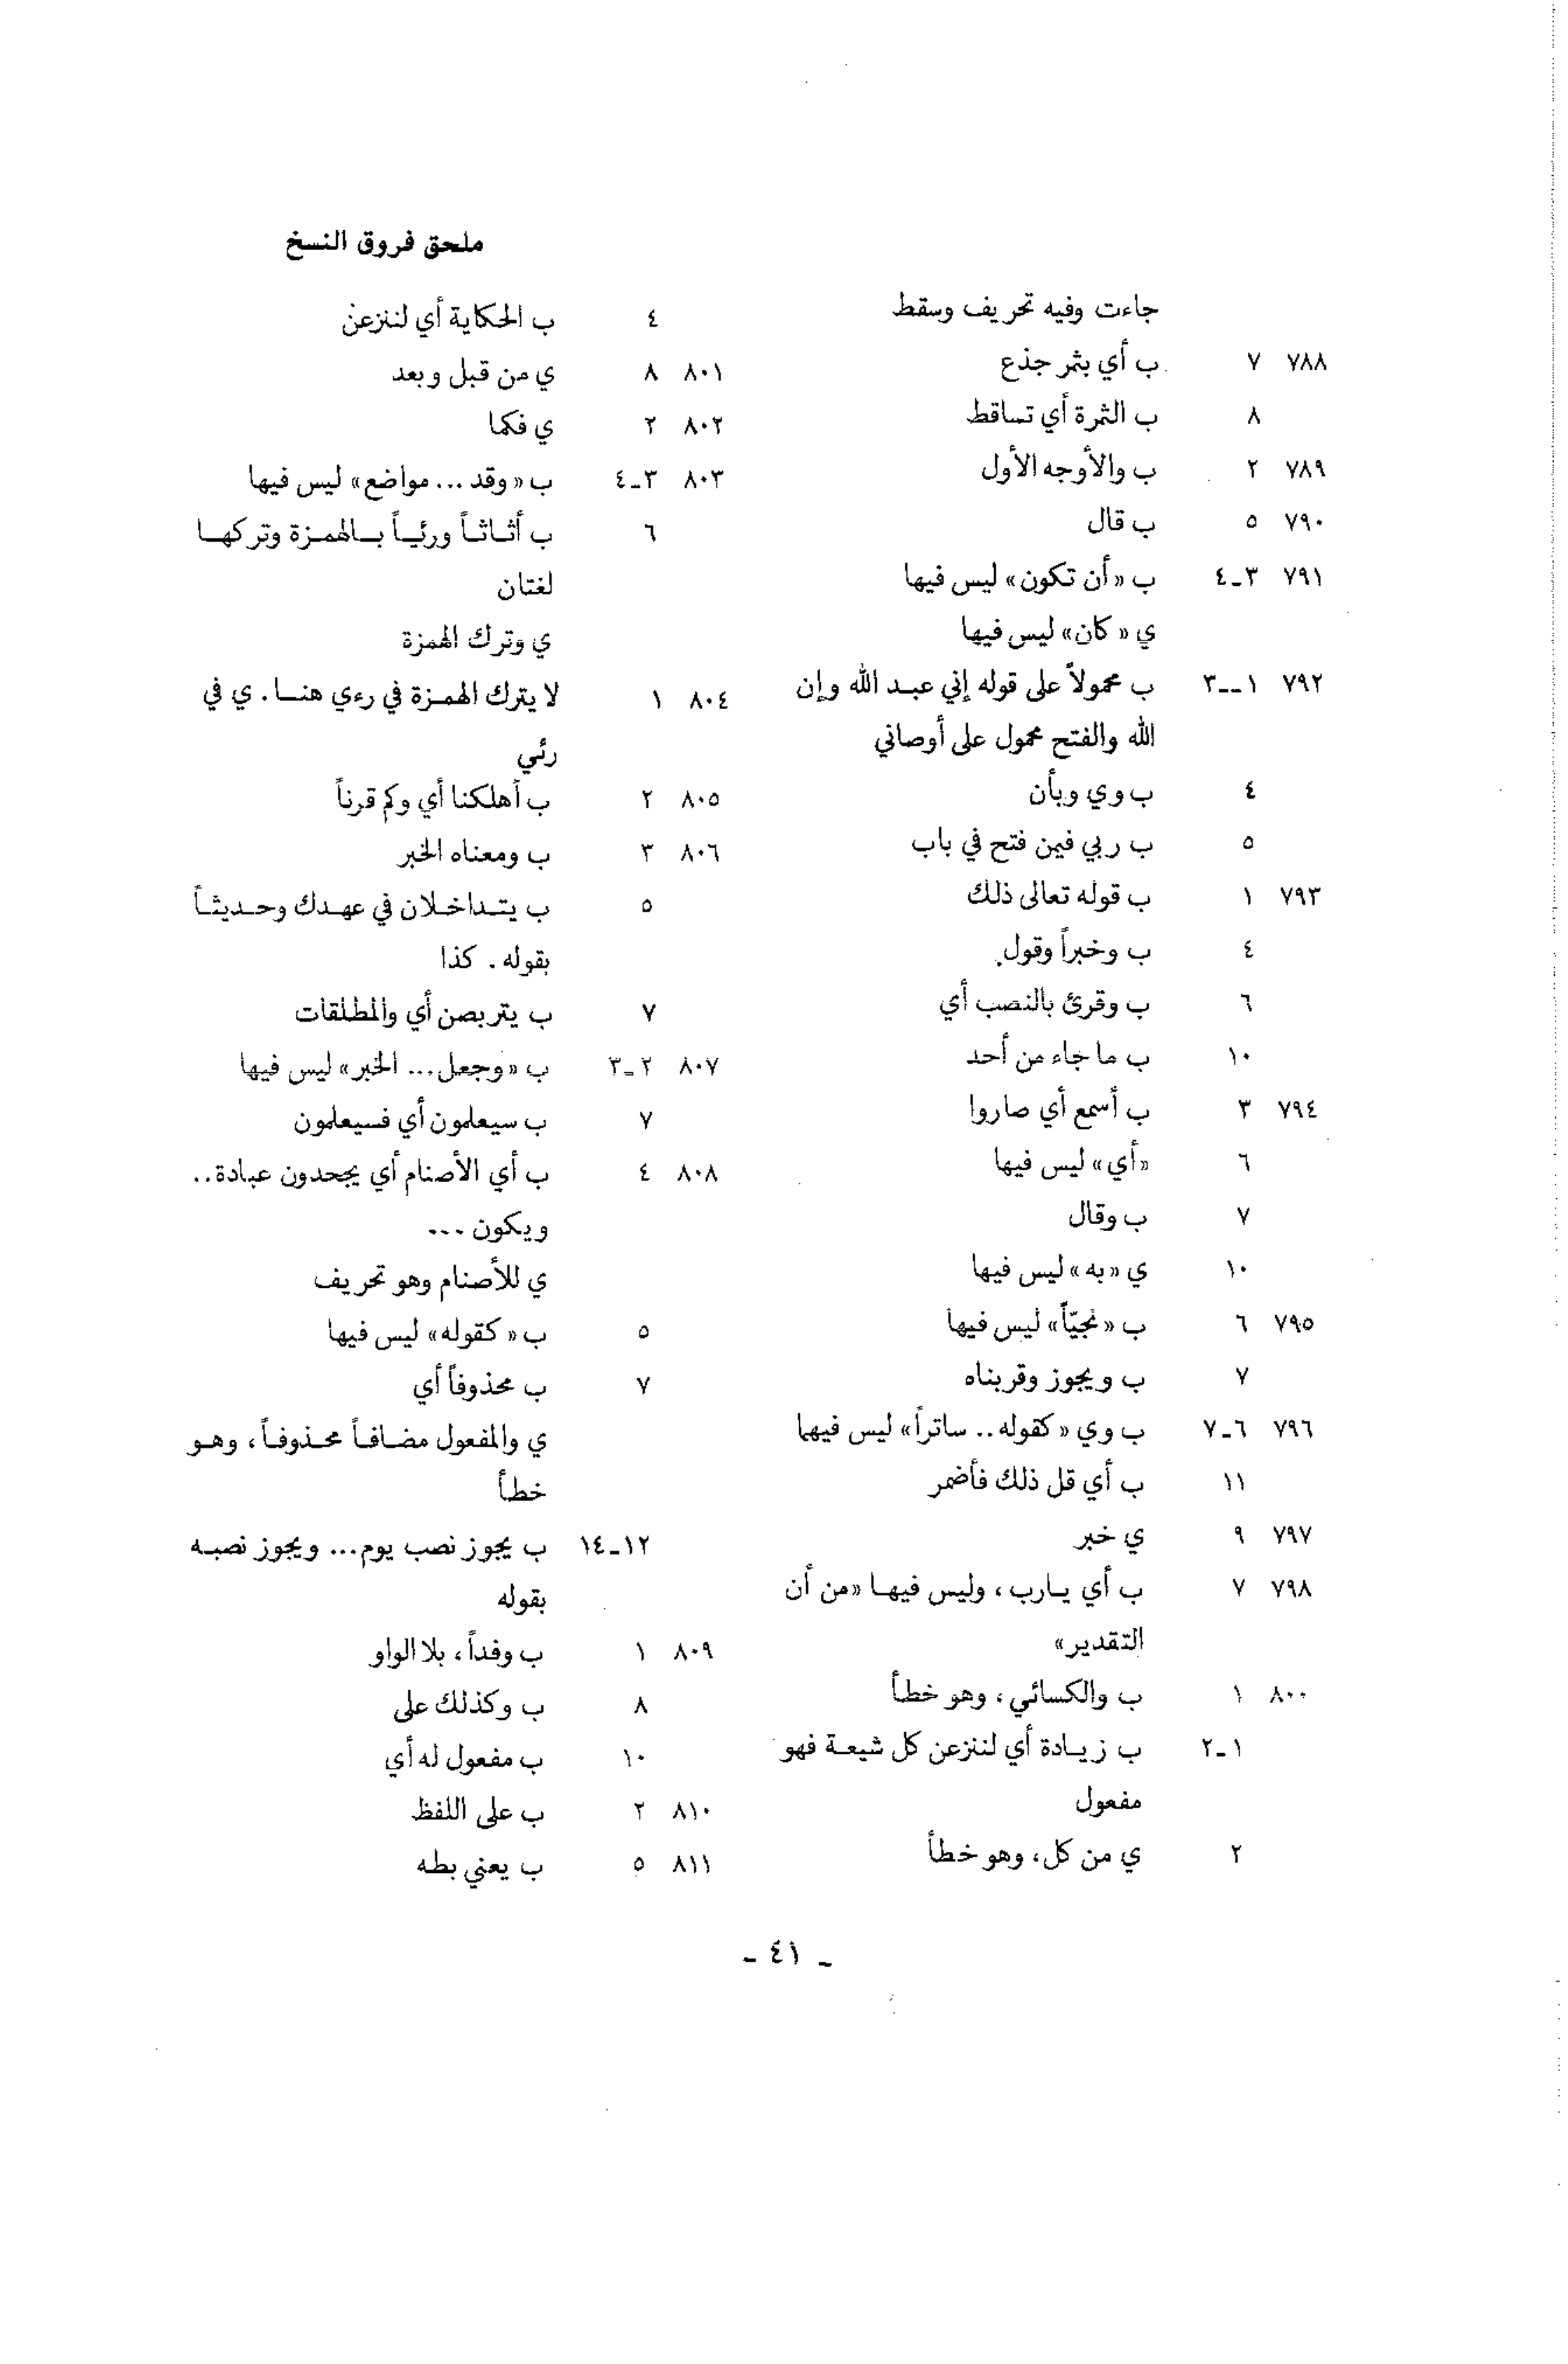 ملحق فروق النسخ
جاءت وفيه تحريف وسقط
٧٨٨ ٧ ب أي بثمر جذع
٨ ب الثمرة أي تساقط
٧٨٩ ٢ ب والأوجه الأول
٧٩٠ ٥ ب قال
٧٩١ ٣ـ٤ ب «أن تكون» ليس فيها
ي «كان» ليس فيها
٧٩٢ ١ــ٣ ب محمولاً على قوله إني عبد الله وإن
الله والفتح محمول على أوصاني
٤ ب وي وبأن
٥ ب ربي فيمن فتح في باب
٧٩٣ ١ ب قوله تعالى ذلك
٤ ب وخبراً وقول.
٦ ب وقرئ بالنصب أي
١٠ ب ما جاء من أحد
٧٩٤ ٣ ب أسمع أي صاروا
٦ «أي» ليس فيها
٧ ب وقال
١٠ ي «به» ليس فيها
٧٩٥ ٦ ب «نجيّاً» ليس فيها
٧ ب ويجوز وقربناه
٧٩٦ ٦ـ٧ ب وي «كقوله .. ساتراً» ليس فيها
١١ ب أي قل ذلك فأضمر
٧٩٧ ٩ ي خبر
٧٩٨ ٧ ب أي يارب ، وليس فيها «من أن
التقدير»
٨٠٠ ١ ب والكسائي ، وهو خطأ
١ـ٢ ب زيادة أي لننزعن كل شيعة فهو
مفعول
٢ ي من كل، وهو خطأ
٤ ب الحكاية أي لننزعن
٨٠١ ٨ ي من قبل وبعد
٨٠٢ ٢ ي فكما
٨٠٣ ٣ـ٤ ب «وقد ... مواضع» ليس فيها
٦ ب أثاثاً ورئياً بالهمزة وتركها
لغتان
ي وترك الهمزة
٨٠٤ ١ لا يترك الهمزة في رءي هنا . ي في
رئي
٨٠٥ ٢ ب أهلكنا أي وكم قرناً
٨٠٦ ٣ ب ومعناه الخبر
٥ ب يتداخلان في عهدك وحديثاً
بقوله . كذا
٧ ب يتربصن أي والمطلقات
٨٠٧ ٢ـ٣ ب «وجعل ... الخبر» ليس فيها
٧ ب سيعلمون أي فسيعلمون
٨٠٨ ٤ ب أي الأصنام أي يجحدون عبادة ..
ويكون ...
ي للأصنام وهو تحريف
٥ ب «كقوله» ليس فيها
٧ ب محذوفاً أي
ي والمفعول مضافاً محذوفاً ، وهو
خطأ
١٢ـ١٤ ب يجوز نصب يوم ... ويجوز نصبه
بقوله
٨٠٩ ١ ب وفداً ، بلا الواو
٨ ب وكذلك على
١٠ ب مفعول له أي
٨١٠ ٢ ب على اللفظ
٨١١ ٥ ب يعني بطه
ـ ٤١ ـ